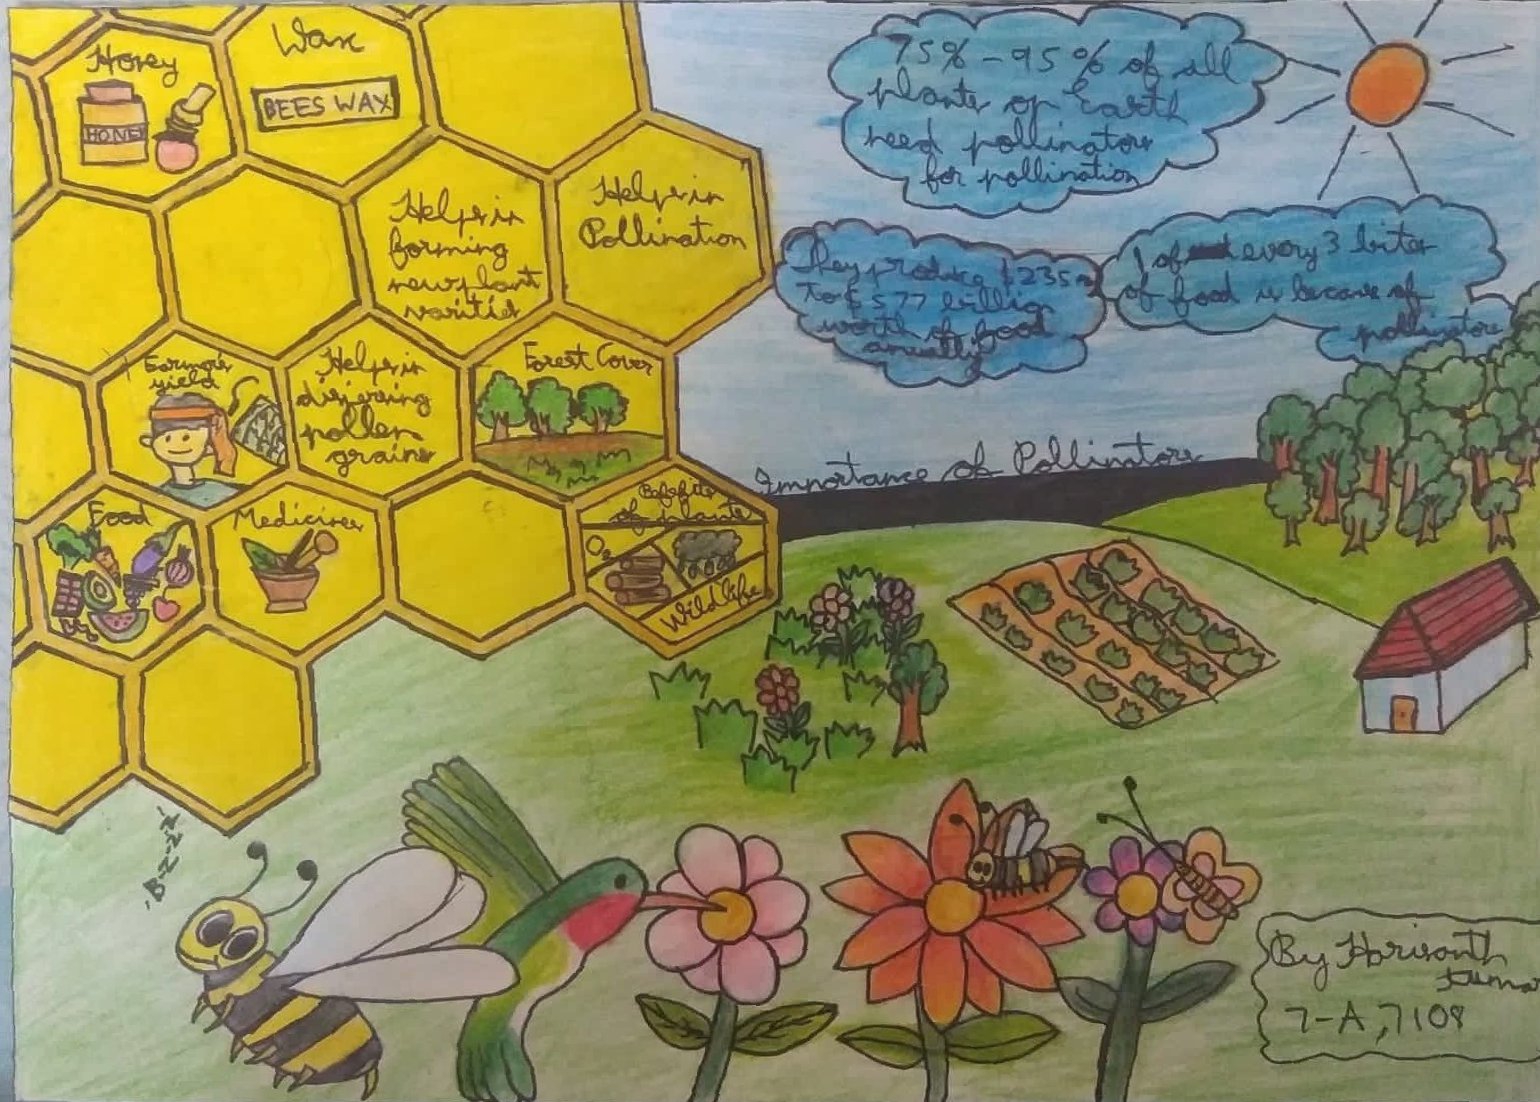 Honey
HONEY
Wax
BEES WAX
Helps in
forming
new plant
varities
Helps in
Pollination
Farmer's
yield
Helps in
dispersing
pollen
grains
Forest Cover
Food
Medicines
Benefits
of plants
O2
Wildlife
75% - 95% of all
plants of Earth
need pollinators
for pollination
They produce $235
to $577 billion
worth of food
anually
1 of every 3 bites
of food is because of
pollinators
Importance of Pollinators
B-z-z-z
By Harisanth
Kumar
7-A, 7108